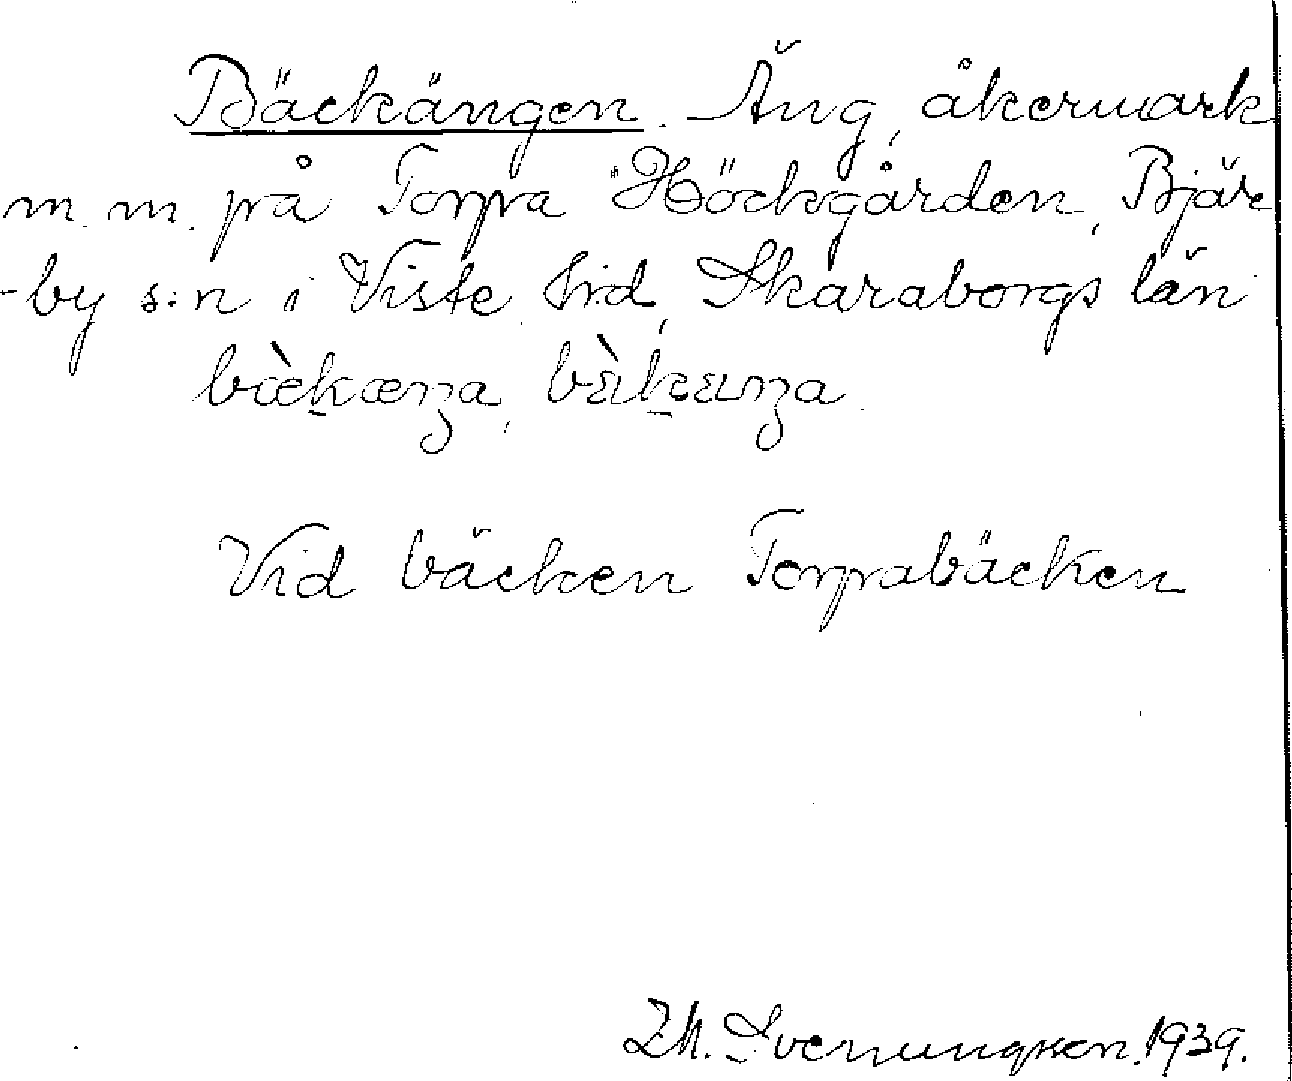 Bäckängen. Äng, åkermark
m. m. på Torpa Höckgården, Bjär-
-by s:n i Viste hrd, Skaraborgs län
Vid bäcken Torpabäcken
Svenungsson. 1939.